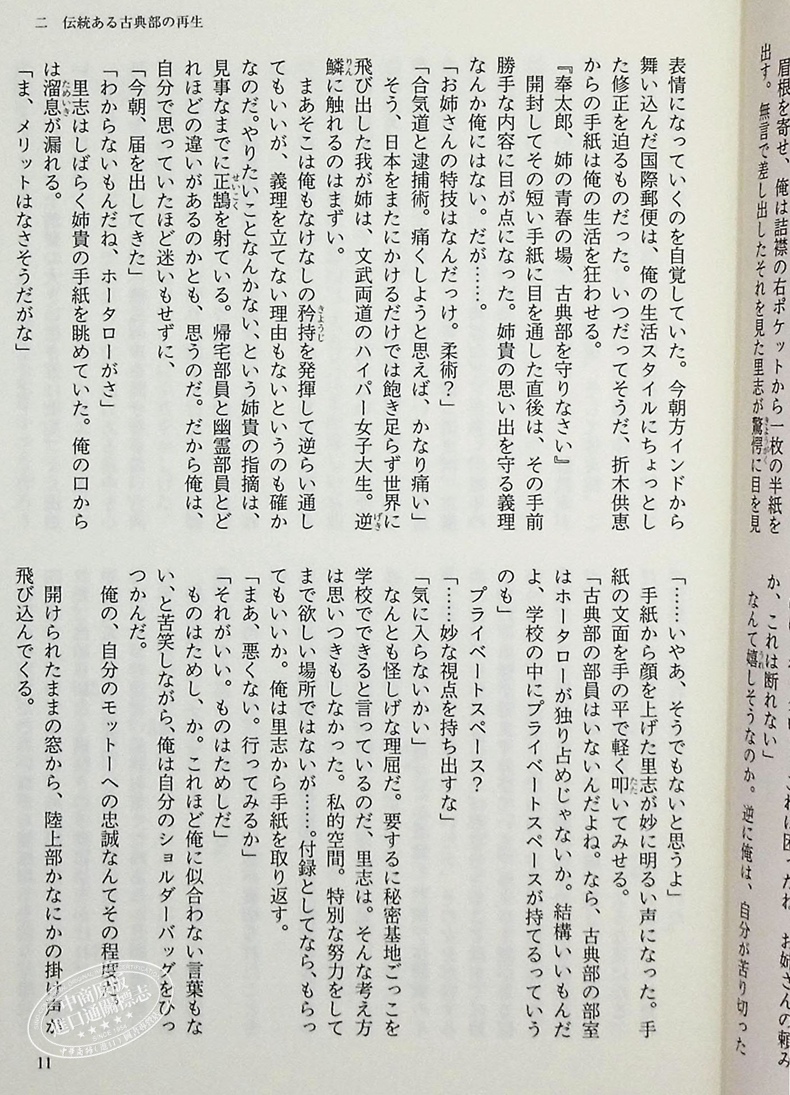 眉根を寄せ、俺は詰襟の右ポケットから一枚の半紙を
出す。無言で差し出したそれを見た里志が驚愕に目を見
か、これは断れない」
なんて嬉しそうなのか。逆に俺は、自分が苦り切った
二 伝統ある古典部の再生
表情になっていくのを自覚していた。今朝方インドから
舞い込んだ国際郵便は、俺の生活スタイルにちょっとし
た修正を迫るものだった。いつだってそうだ、折木供恵
からの手紙は俺の生活を狂わせる。
『奉太郎、姉の青春の場、古典部を守りなさい』
開封してその短い手紙に目を通した直後は、その手前
勝手な内容に目が点になった。姉貴の思い出を守る義理
なんか俺にはない。だが……。
「お姉さんの特技はなんだっけ。柔術？」
「合気道と逮捕術。痛くしようと思えば、かなり痛い」
そう、日本をまたにかけるだけでは飽き足らず世界に
飛び出した我が姉は、文武両道のハイパー女子大生。逆
鱗に触れるのはまずい。
まあそこは俺もなけなしの矜持を発揮して逆らい通し
てもいいが、義理を立てない理由もないというのも確か
なのだ。やりたいことなんかない、という姉貴の指摘は、
見事なまでに正鵠を射ている。帰宅部員と幽霊部員とど
れほどの違いがあるのかとも、思うのだ。だから俺は、
自分で思っていたほど迷いもせずに、
「今朝、届を出してきた」
「わからないもんだね、ホータローがさ」
里志はしばらく姉貴の手紙を眺めていた。俺の口から
は溜息が漏れる。
「ま、メリットはなさそうだがな」
「……いやあ、そうでもないと思うよ」
手紙から顔を上げた里志が妙に明るい声になった。手
紙の文面を手の平で軽く叩いてみせる。
「古典部の部員はいないんだよね。なら、古典部の部室
はホータローが独り占めじゃないか。結構いいもんだ
よ、学校の中にプライベートスペースが持てるっていう
のも」
プライベートスペース？
「……妙な視点を持ち出すな」
「気に入らないかい」
なんとも怪しげな理屈だ。要するに秘密基地ごっこを
学校でできると言っているのだ、里志は。そんな考え方
は思いつきもしなかった。私的空間。特別な努力をして
まで欲しい場所ではないが……。付録としてなら、もらっ
てもいいか。俺は里志から手紙を取り返す。
「まあ、悪くない。行ってみるか」
「それがいい。ものはためしだ」
ものはためし、か。これほど俺に似合わない言葉もな
い、と苦笑しながら、俺は自分のショルダーバッグをひっ
つかんだ。
俺の、自分のモットーへの忠誠なんてその程度だ。
開けられたままの窓から、陸上部かなにかの掛け声が
飛び込んでくる。
11
中商原版
進口通關標志